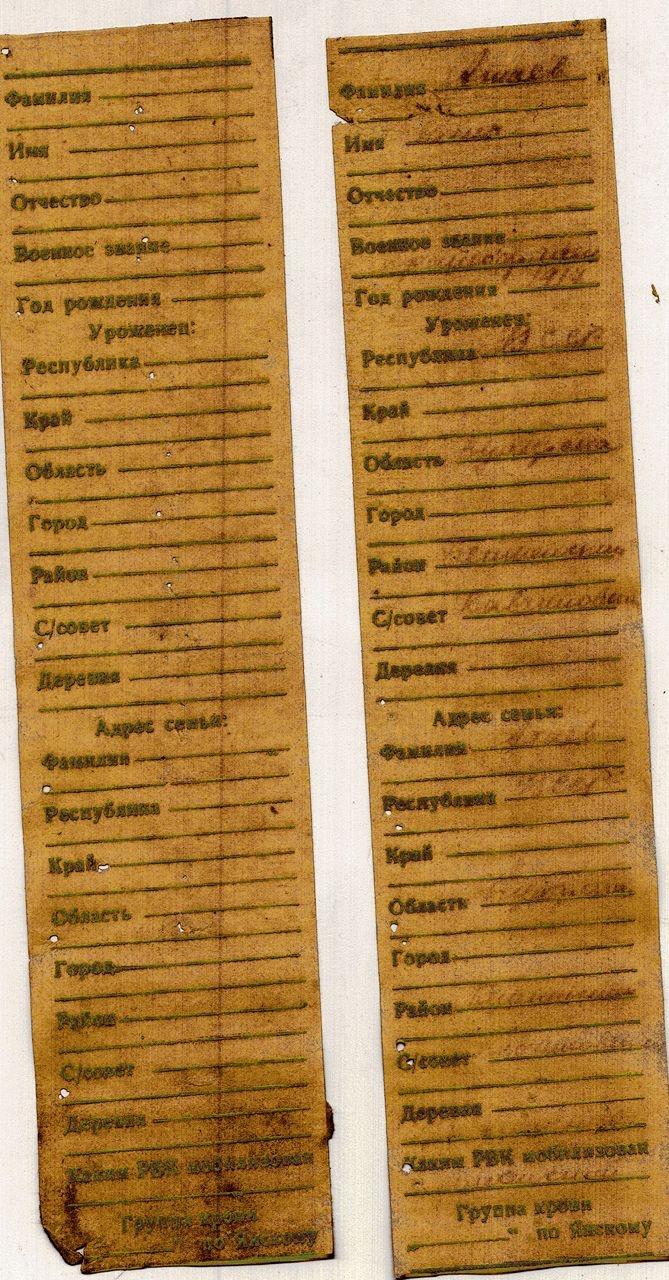 Фамилия
Имя
Отчество
Военное звание
Год рождения
Уроженец:
Республика
Край
Область
Город
Район
С/совет
Деревня
Адрес семьи:
Фамилии
Республика
Край
Область
Город
Район
С/совет
Деревня
Каким РВК мобилизован
Группа крови
" по Янскому
Фамилия
Имя
Отчество
Военное звание
Год рождения 1918
Уроженец:
Республика
Край
Область
Город
Район
С/совет
Деревня
Адрес семьи:
Фамилии
Республика
Край
Область
Город
Район
С/совет
Деревня
Каким РВК мобилизован
Группа крови
" по Янскому